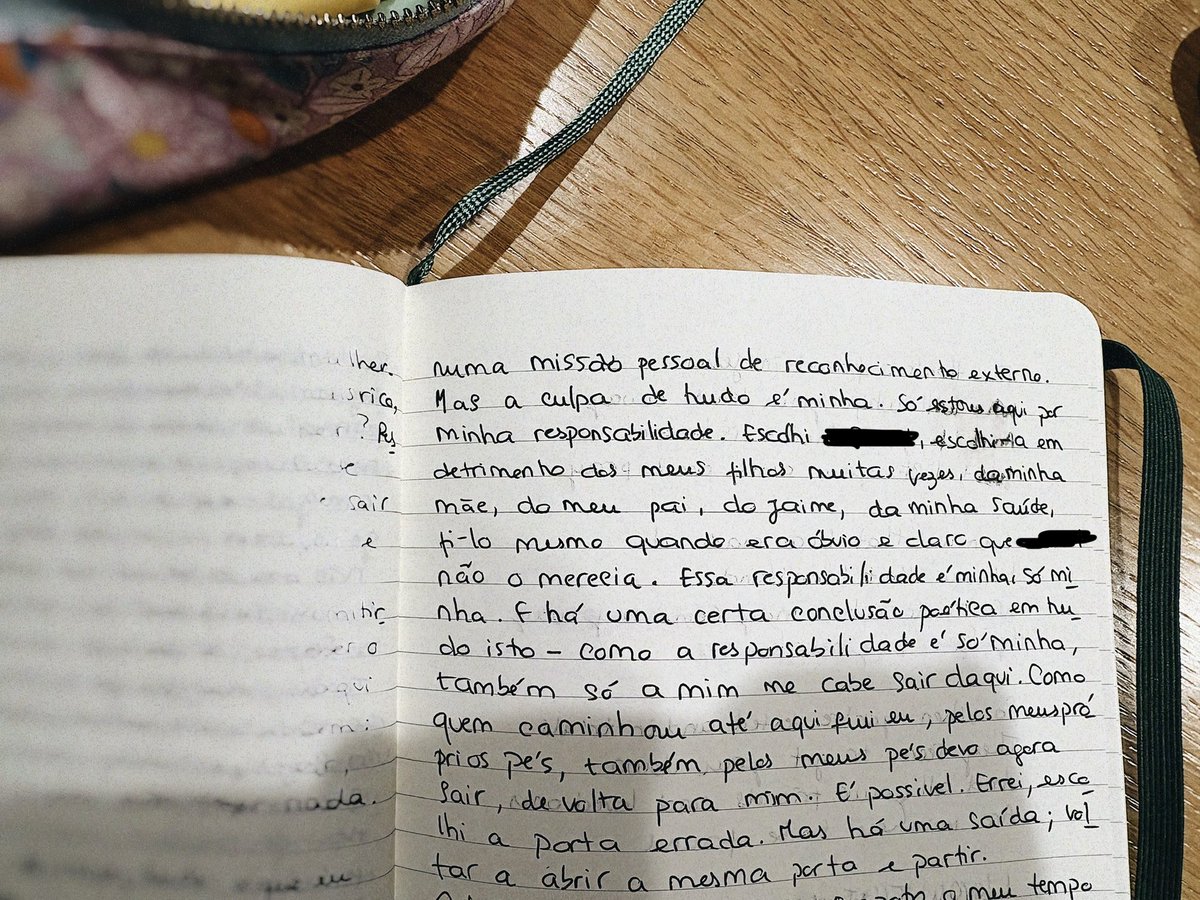 lher.
srica,
? Pes
e
sair
e
mitir
ero
aqui
nada.
que eu
numa missão pessoal de reconhecimento externo.
Mas a culpa de tudo é minha. Só estou aqui por
minha responsabilidade. Escolhi , escolhi-a em
detrimento dos meus filhos muitas vezes, da minha
mãe, do meu pai, do Jaime, da minha saúde,
fi-lo mesmo quando era óbvio e claro que
não o merecia. Essa responsabilidade é minha, só mi
nha. E há uma certa conclusão poética em tu
do isto - como a responsabilidade é só minha,
também só a mim me cabe sair daqui. Como
quem caminhou até aqui fui eu, pelos meus pró
prios pés, também pelos meus pés devo agora
sair, de volta para mim. É possível. Errei, esco
lhi a porta errada. Mas há uma saída; vol
tar a abrir a mesma porta e partir.
o meu tempo